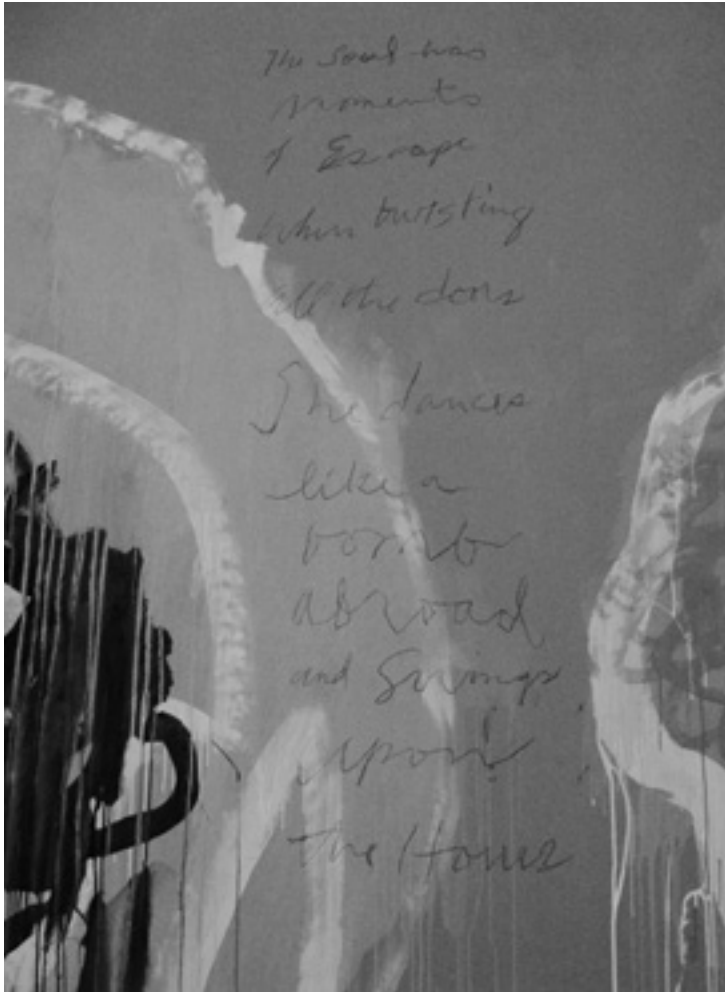 The Soul has
moments
of Escape
when bursting
all the doors
She dances
like a
bomb
abroad
and Swings
upon
the Hours